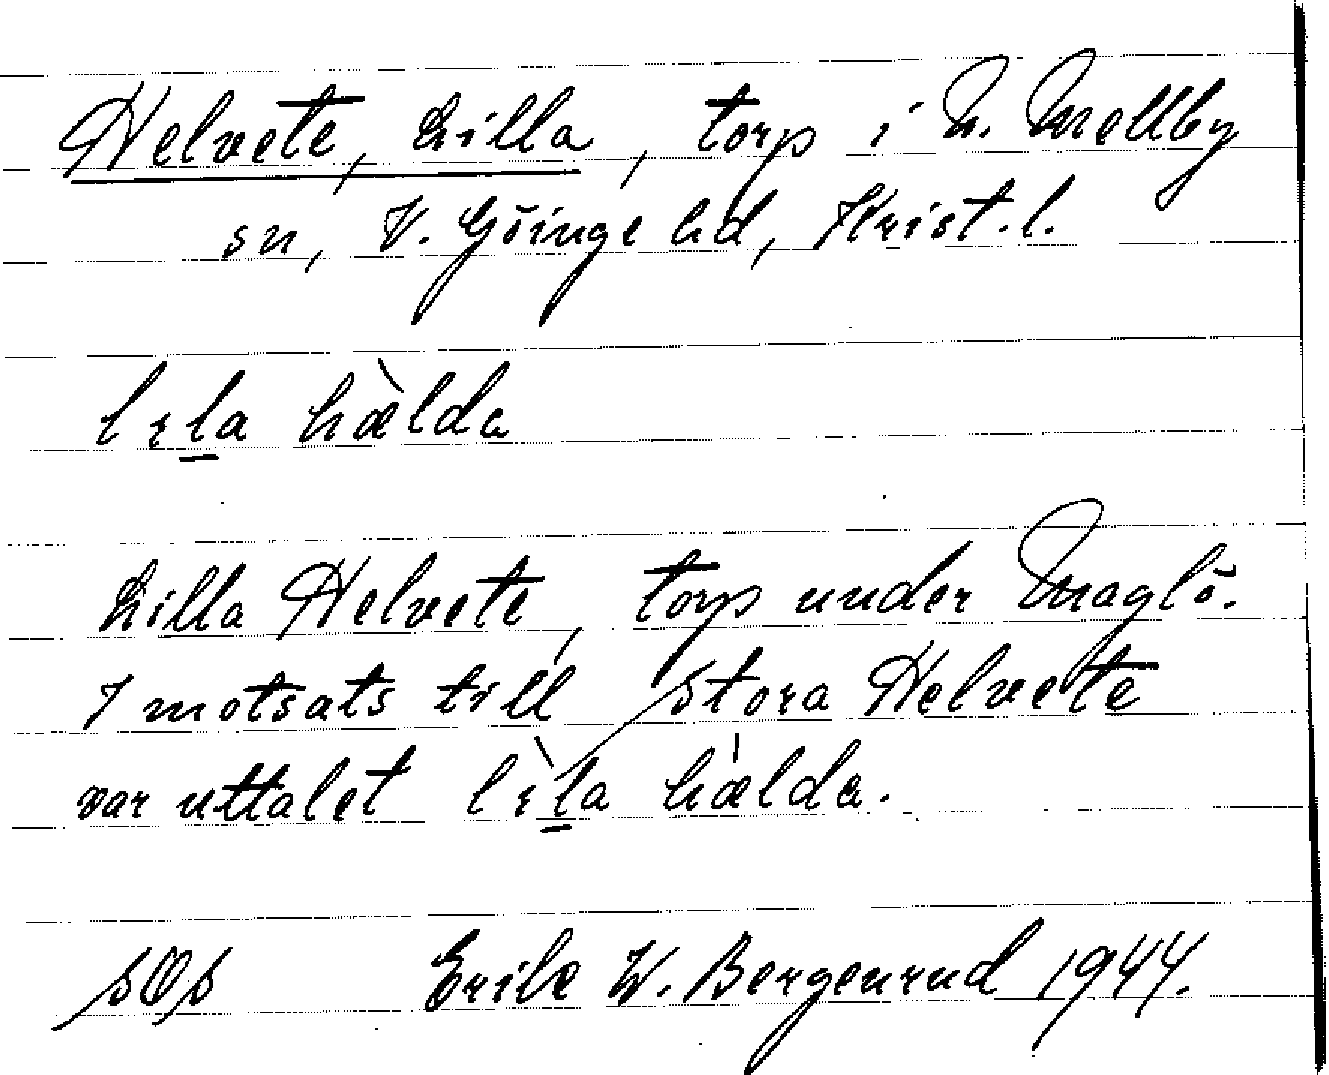 Helvete, Lilla, torp i N. Mellby
sn, V. Göinge hd, Krist.l.
lıla hὰlda
Lilla Helvete, torp under Maglö.
I motsats till Stora Helvete
var uttalet lıla hælda.
SOS Erik W. Bergenrud 1944.